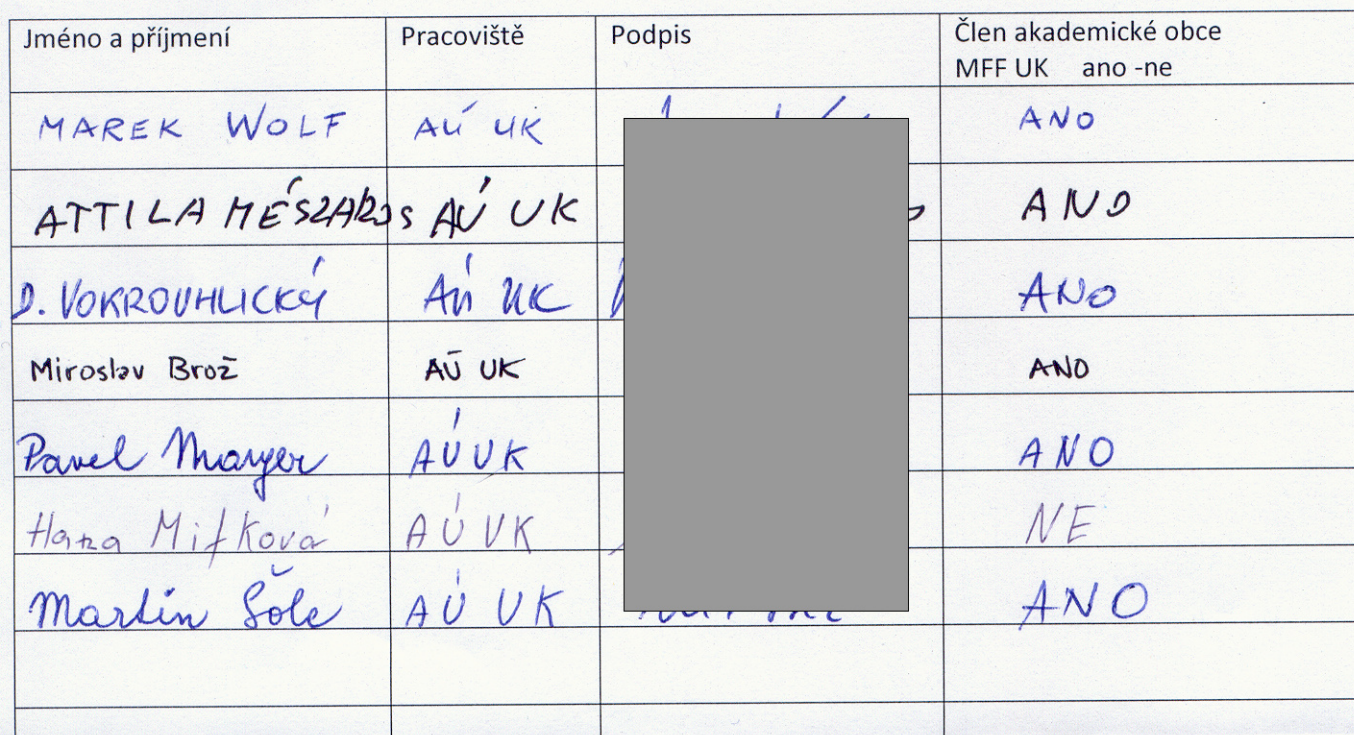 Jméno a příjmení Pracoviště Podpis Člen akademické obce
MFF UK ano -ne
MAREK WOLF AÚ UK ANO
ATTILA MÉSZÁROS AÚ UK ANO
D. VOKROUHLICKÝ AÚ UK ANO
Miroslav Brož AÚ UK ANO
Pavel Mayer AÚ UK ANO
Hana Mifková AÚ UK NE
Martin Šolc AÚ UK ANO